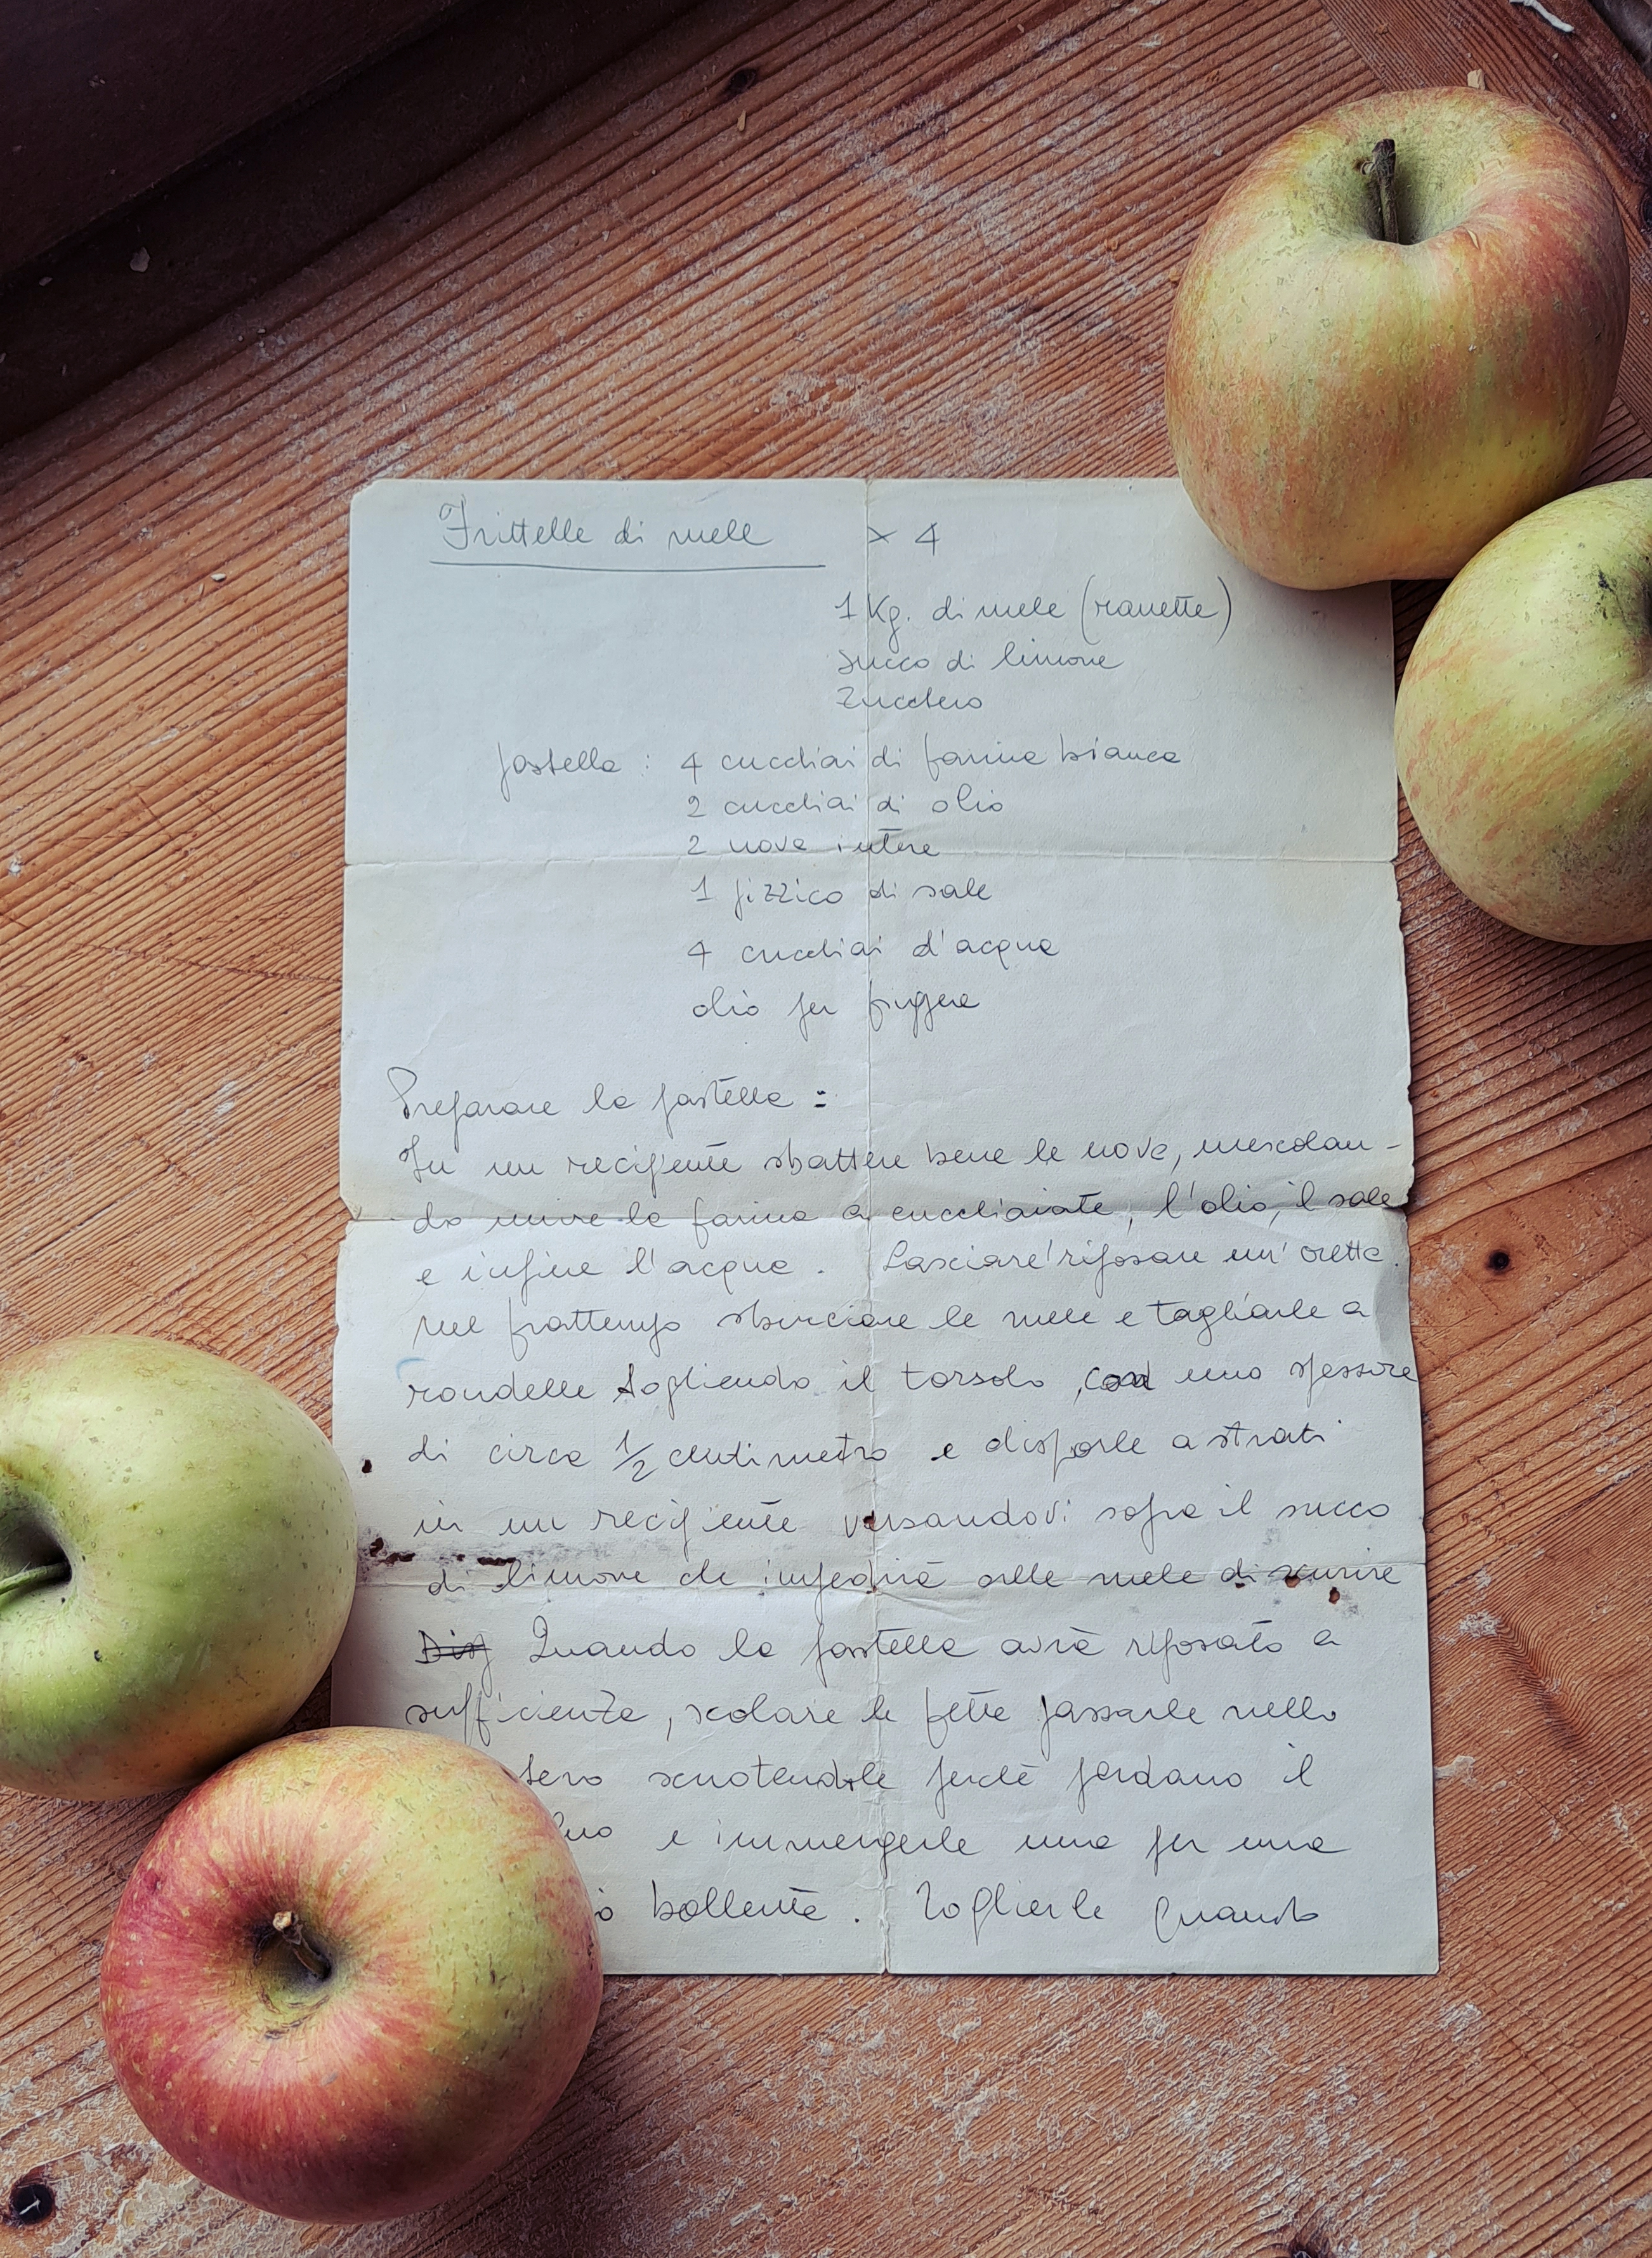 Frittelle di mele × 4
1 Kg. di mele (ranette)
succo di limone
Zucchero
pastella : 4 cucchiai di farina bianca
2 cucchiai di olio
2 uova intere
1 pizzico di sale
4 cucchiai d'acqua
olio per friggere
Preparare la pastella :
In un recipiente sbattere bene le uova, mescolan-
do unire la farina a cucchiaiate, l'olio, il sale
e infine l'acqua. Lasciare riposare un'oretta.
nel frattempo sbucciare le mele e tagliarle a
rondelle togliendo il torsolo, con uno spessore
di circa 1/2 centimetro e disporle a strati
in un recipiente versandovi sopra il succo
di limone che impedirà alle mele di scurire
Quando la pastella avrà riposato a
sufficienza, scolare le fette passarle nello
scuotendole perchè perdano il
e immergerle una per una
bollente. Toglierle quando